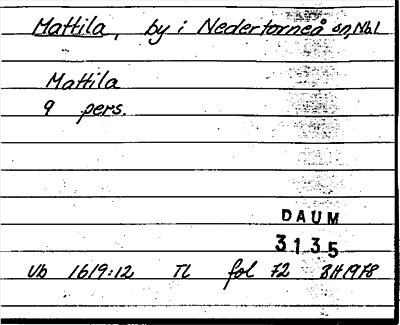 Mattila, by i Nedertorneå sn, Nb.l
Mattila
9 pers.
DAUM
3135
Vb 1619:12 TL fol 72 BH 1978